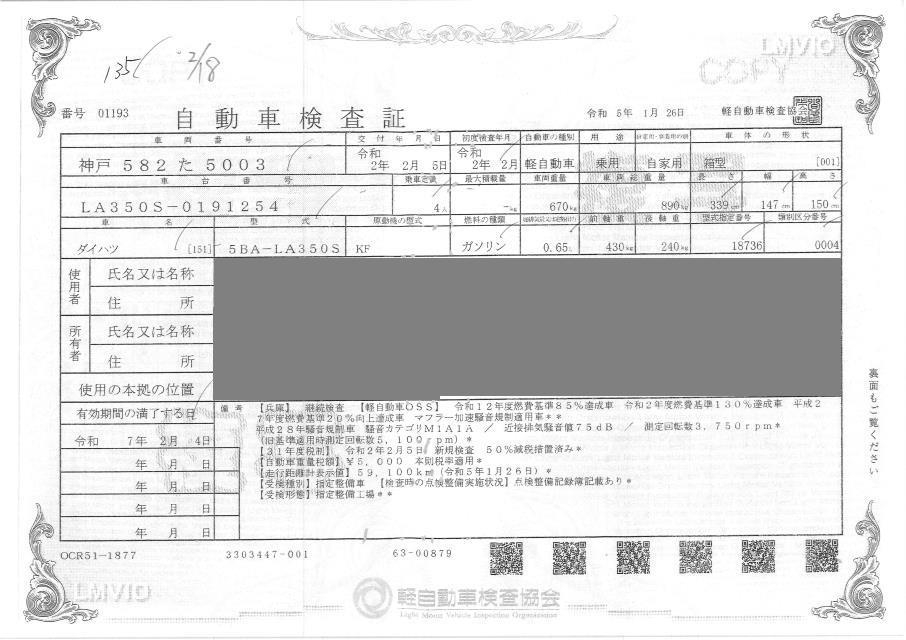 135 2/18
LMVIO
COPY
番号 01193 自動車検査証 令和 5年 1月 26日 軽自動車検査協会
車両番号 交付年月日 初度検査年月 自動車の種別 用途 自家用・事業用の別 車体の形状
神戸 582 た 5003 令和 2年 2月 5日 令和 2年 2月 軽自動車 乗用 自家用 箱型 [001]
車台番号 乗車定員 最大積載量 車両重量 車両総重量 長さ 幅 高さ
LA350S-0191254 4人 -kg 670kg 890kg 339cm 147cm 150cm
車名 型式 原動機の型式 燃料の種類 前軸重 後軸重 型式指定番号 類別区分番号
ダイハツ [151] 5BA-LA350S KF ガソリン 0.65L 430kg 240kg 18736 0004
使用者 氏名又は名称
住所
所有者 氏名又は名称
住所
使用の本拠の位置
有効期間の満了する日
令和 7年 2月 4日
年 月 日
年 月 日
年 月 日
年 月 日
備考
【兵庫】 継続検査 【軽自動車OSS】 令和12年度燃費基準85%達成車 令和2年度燃費基準130%達成車 平成2
7年度燃費基準20%向上達成車 マフラー加速騒音規制適用車**
平成28年騒音規制車 騒音カテゴリM1A1A / 近接排気騒音値75dB / 測定回転数3,750rpm*
(旧基準適用時測定回転数5,100rpm)*
【31年度税制】 令和2年2月5日 新規検査 50%減税措置済み*
【自動車重量税額】¥5,000 本則税率適用*
【走行距離計表示値】59,100km(令和5年1月26日)*
【受検種別】指定整備車 【検査時の点検整備実施状況】点検整備記録簿記載あり*
【受検形態】指定整備工場**
裏面もご覧ください
OCR51-1877 3303447-001 63-00879
LMVIO
軽自動車検査協会
Light Motor Vehicle Inspection Organization